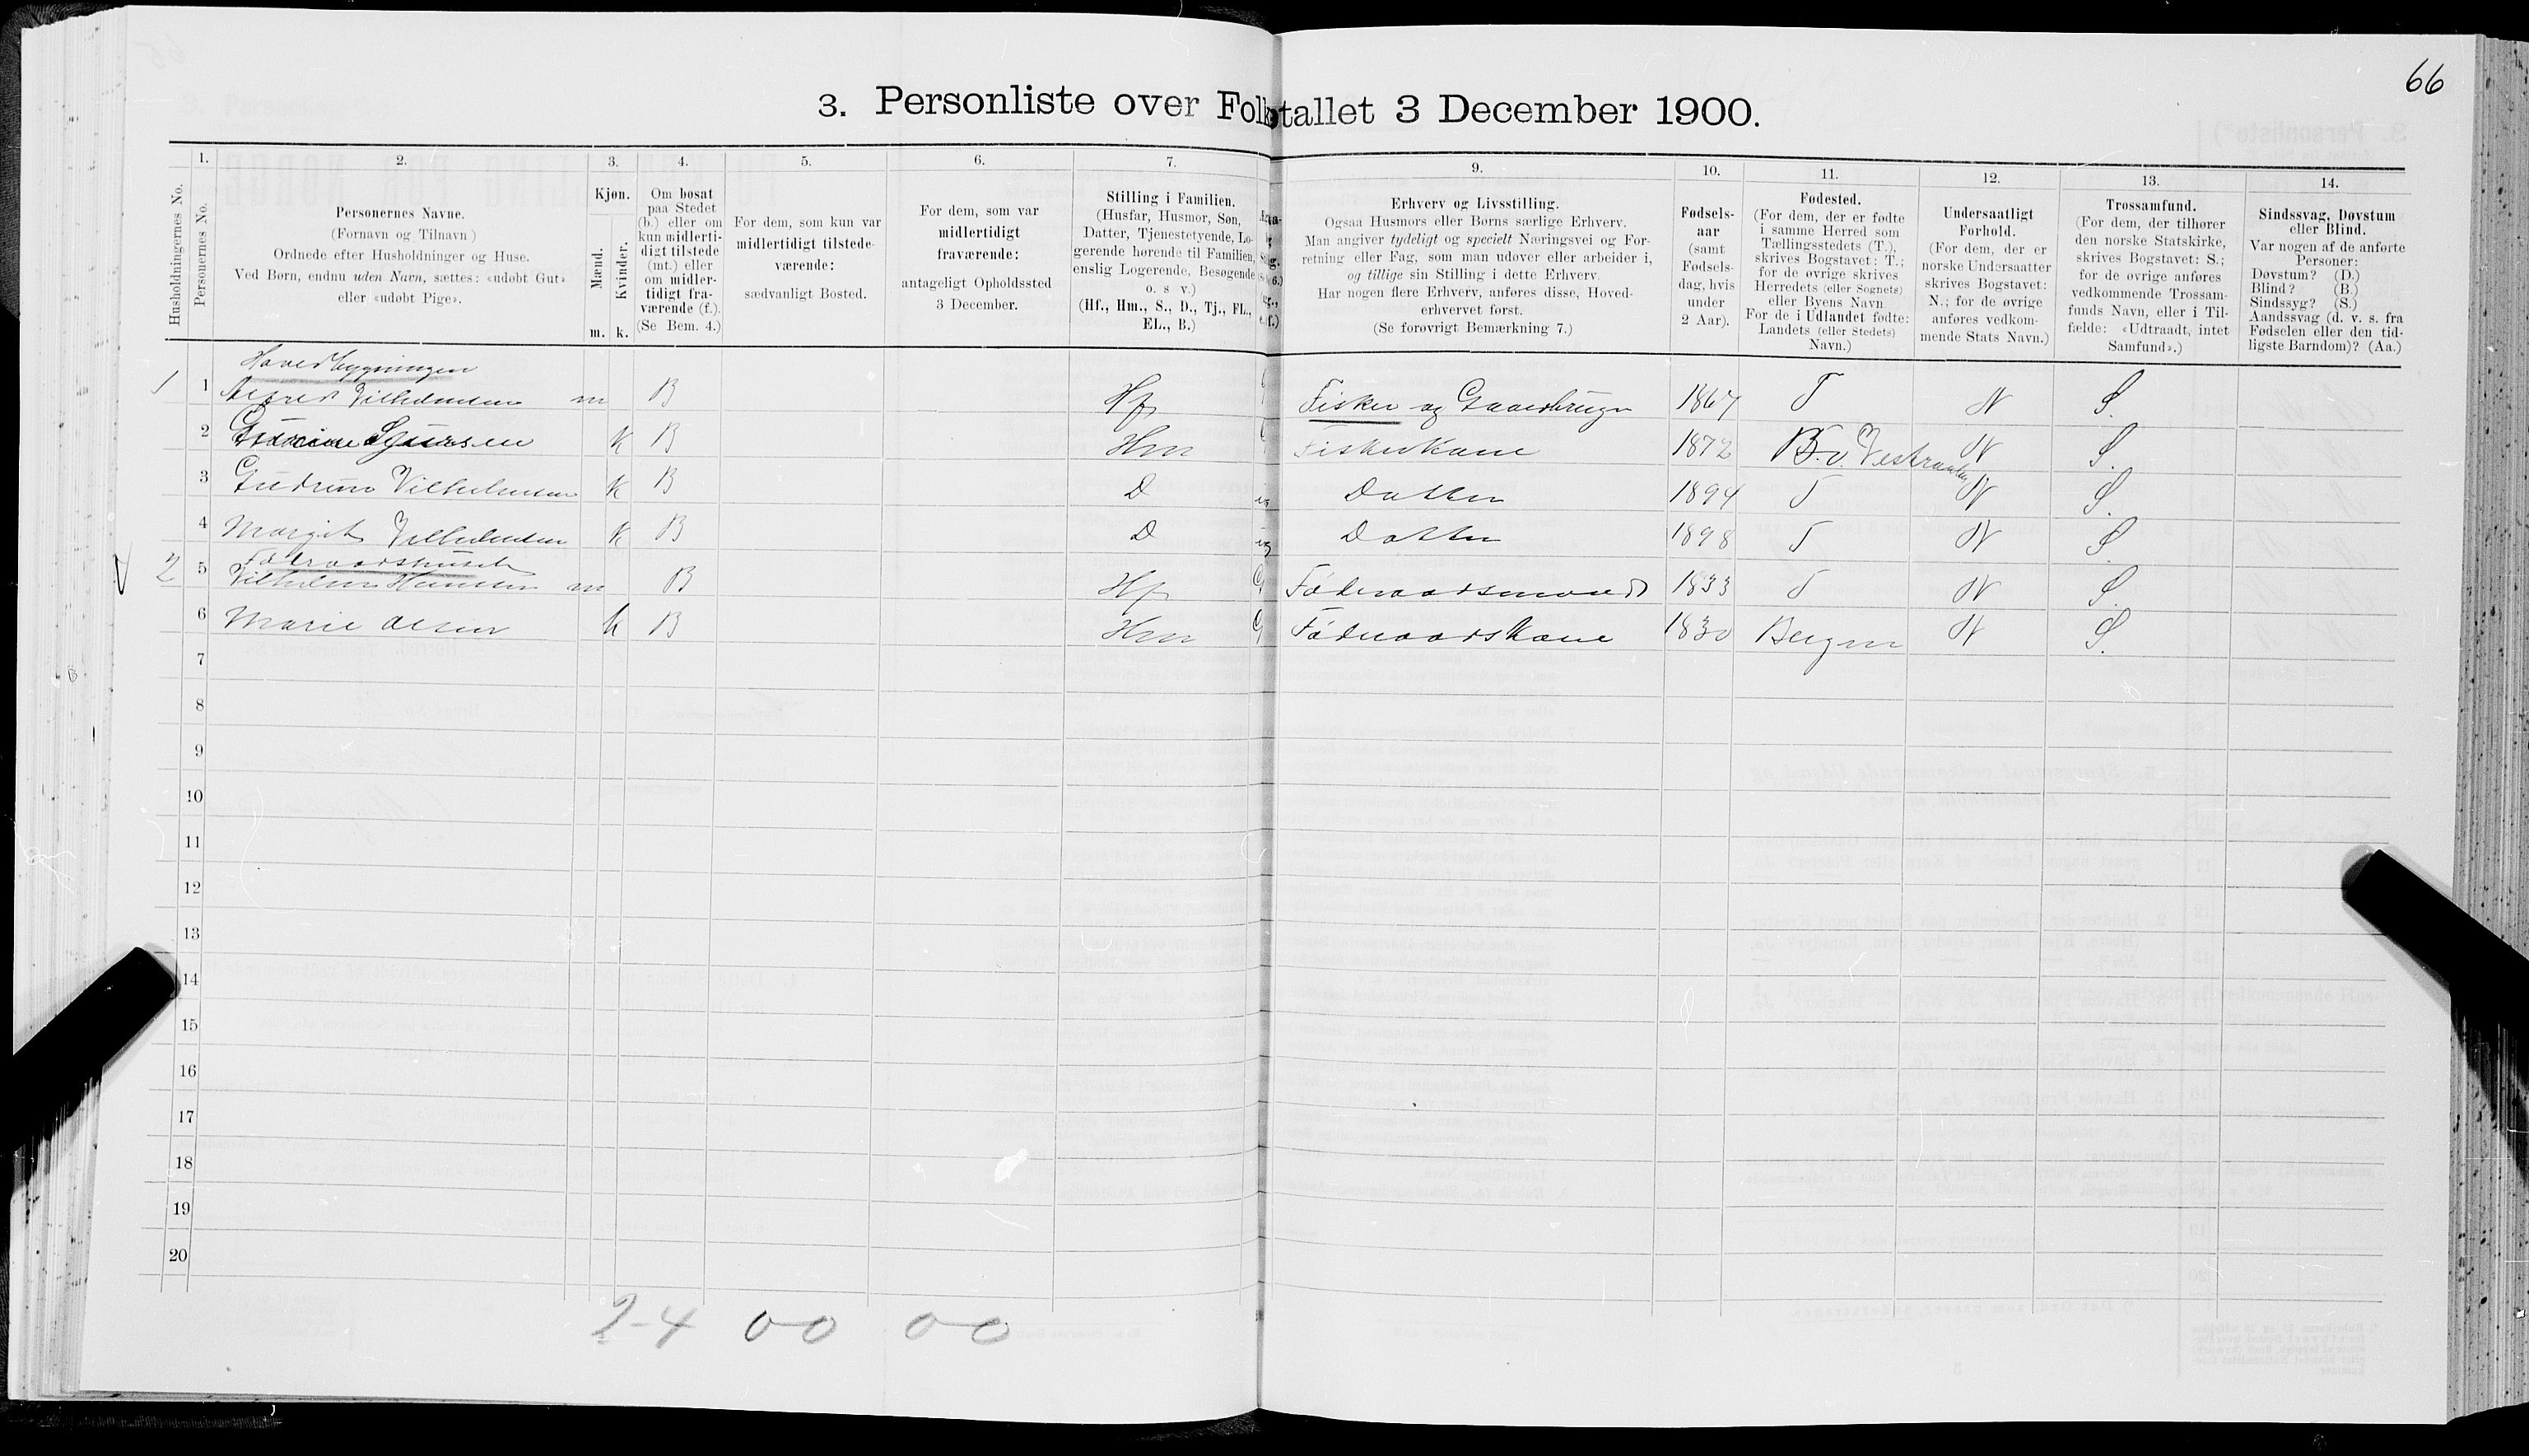 66
3. Personliste over Folketallet 3 December 1900.
1. 2. 3. 4. 5. 6. 7. 9. 10. 11. 12. 13. 14.
Husholdningernes No.
Personernes No.
Personernes Navne.
(Fornavn og Tilnavn)
Ordnede efter Husholdninger og Huse.
Ved Børn, endnu uden Navn, sættes: «udøbt Gut»
eller «udøbt Pige».
Kjøn.
Mænd.
Kvinder.
m. k.
Om bosat
paa Stedet
(b.) eller om
kun midlerti-
digt tilstede
(mt.) eller
om midler-
tidigt fra-
værende (f.).
(Se Bem. 4.)
For dem, som kun var
midlertidigt tilstede-
værende:
sædvanligt Bosted.
For dem, som var
midlertidigt
fraværende:
antageligt Opholdssted
3 December.
Stilling i Familien.
(Husfar, Husmor, Søn,
Datter, Tjenestetyende, Lo-
gerende hørende til Familien,
enslig Logerende, Besøgende
o. s v.)
(Hf., Hm., S., D., Tj., FL.,
EL., B.)
Erhverv og Livsstilling.
Ogsaa Husmors eller Børns særlige Erhverv.
Man angiver tydeligt og specielt Næringsvei og For-
retning eller Fag, som man udøver eller arbeider i,
og tillige sin Stilling i dette Erhverv.
Har nogen flere Erhverv, anføres disse, Hoved-
erhvervet først.
(Se forøvrigt Bemærkning 7.)
Fødsels-
aar
(samt
Fødsels-
dag, hvis
under
2 Aar).
Fødested.
(For dem, der er fødte
i samme Herred som
Tællingsstedets (T.),
skrives Bogstavet: T.;
for de øvrige skrives
Herredets (eller Sognets)
eller Byens Navn
For de i Udlandet fødte:
Landets (eller Stedets)
Navn.)
Undersaatligt
Forhold.
(For dem, der er
norske Undersaatter
skrives Bogstavet:
N.; for de øvrige
anføres vedkom-
mende Stats Navn.)
Trossamfund.
(For dem, der tilhører
den norske Statskirke,
skrives Bogstavet: S.;
for de øvrige anføres
vedkommende Trossam-
funds Navn, eller i Til-
fælde: «Udtraadt, intet
Samfund».)
Sindssvag, Døvstum
eller Blind.
Var nogen af de anførte
Personer:
Døvstum? (D.)
Blind? (B.)
Sindssyg? (S.)
Aandssvag (d. v. s. fra
Fødselen eller den tid-
ligste Barndom)? (Aa.)
Hovedbygningen
1 1 Alfred Vilhelmsen m B Hf G Fisker og Gaardbruger 1867 T N S.
2 Sjursen k B Hm G Fiskerkone 1872 B. v. N S.
3 Gudrun Vilhelmsen k B D ug Datter 1894 T N S.
4 Margit Vilhelmsen k B D ug Datter 1898 T N S.
Føderaadshuset
2 5 Vilhelm Hansen m B Hf G Føderaadsmand 1833 T N S.
6 Marie Olsen k B Hm G Føderaadskone 1830 Bergen N S.
7
8
9
10
11
12
13
14
15
16
17
18
19
20
2-4 0-0 0-0